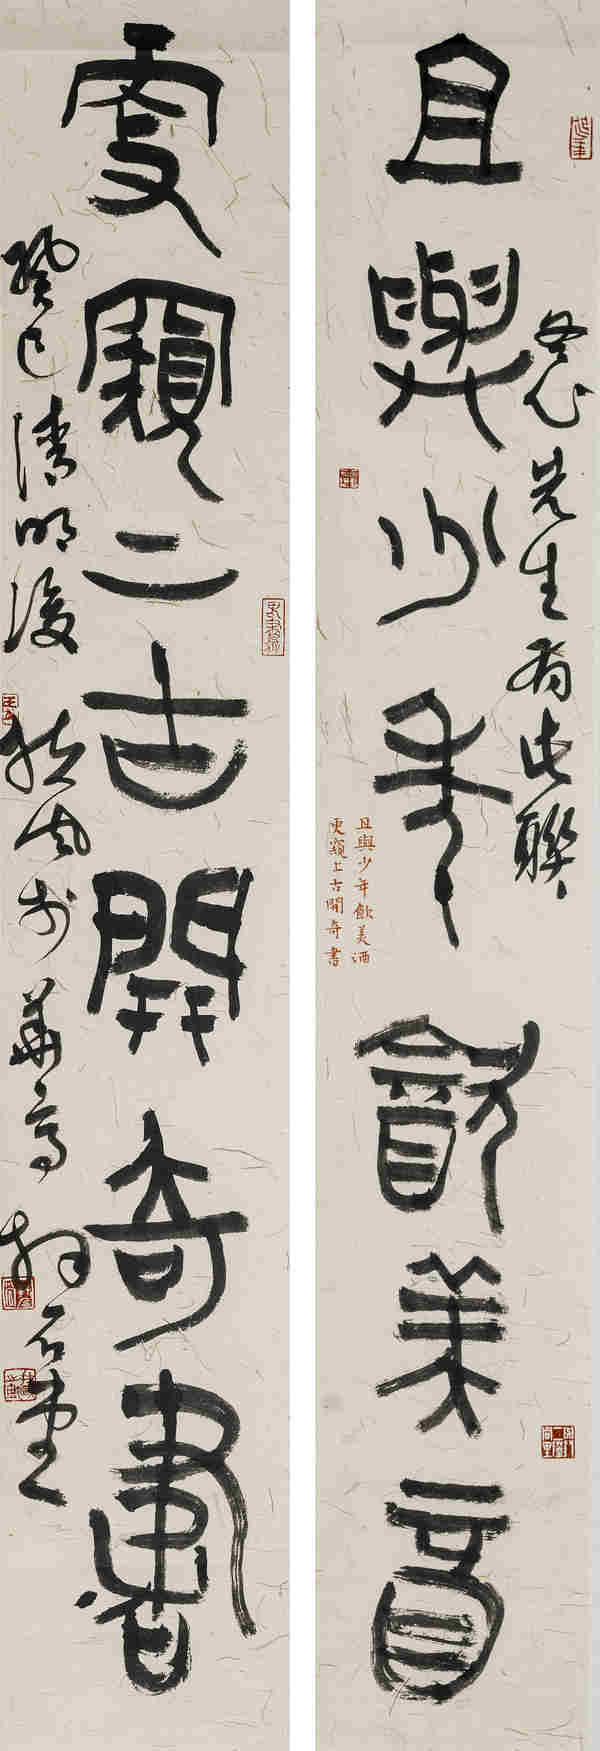 冬心先生有此聯
且與少年飲美酒
且與少年飲美酒
更窺上古開奇書
更窺上古開奇書
癸巳清明後 於華亭 石堂